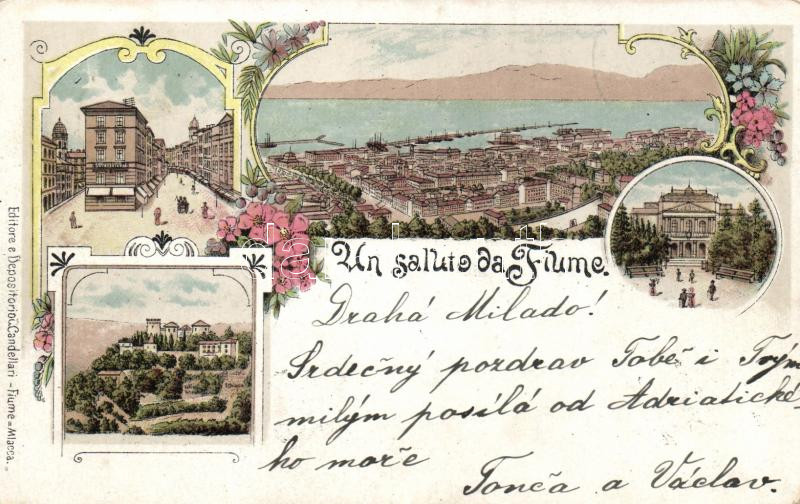 Un saluto da Fiume.
Drahá Milado!
Srdečný pozdrav Tobě i Tvým
milým posílá od Adriatické-
ho moře
Tonča a Václav.
Editore e Depositorio G. Candellari - Fiume = Mlacca.